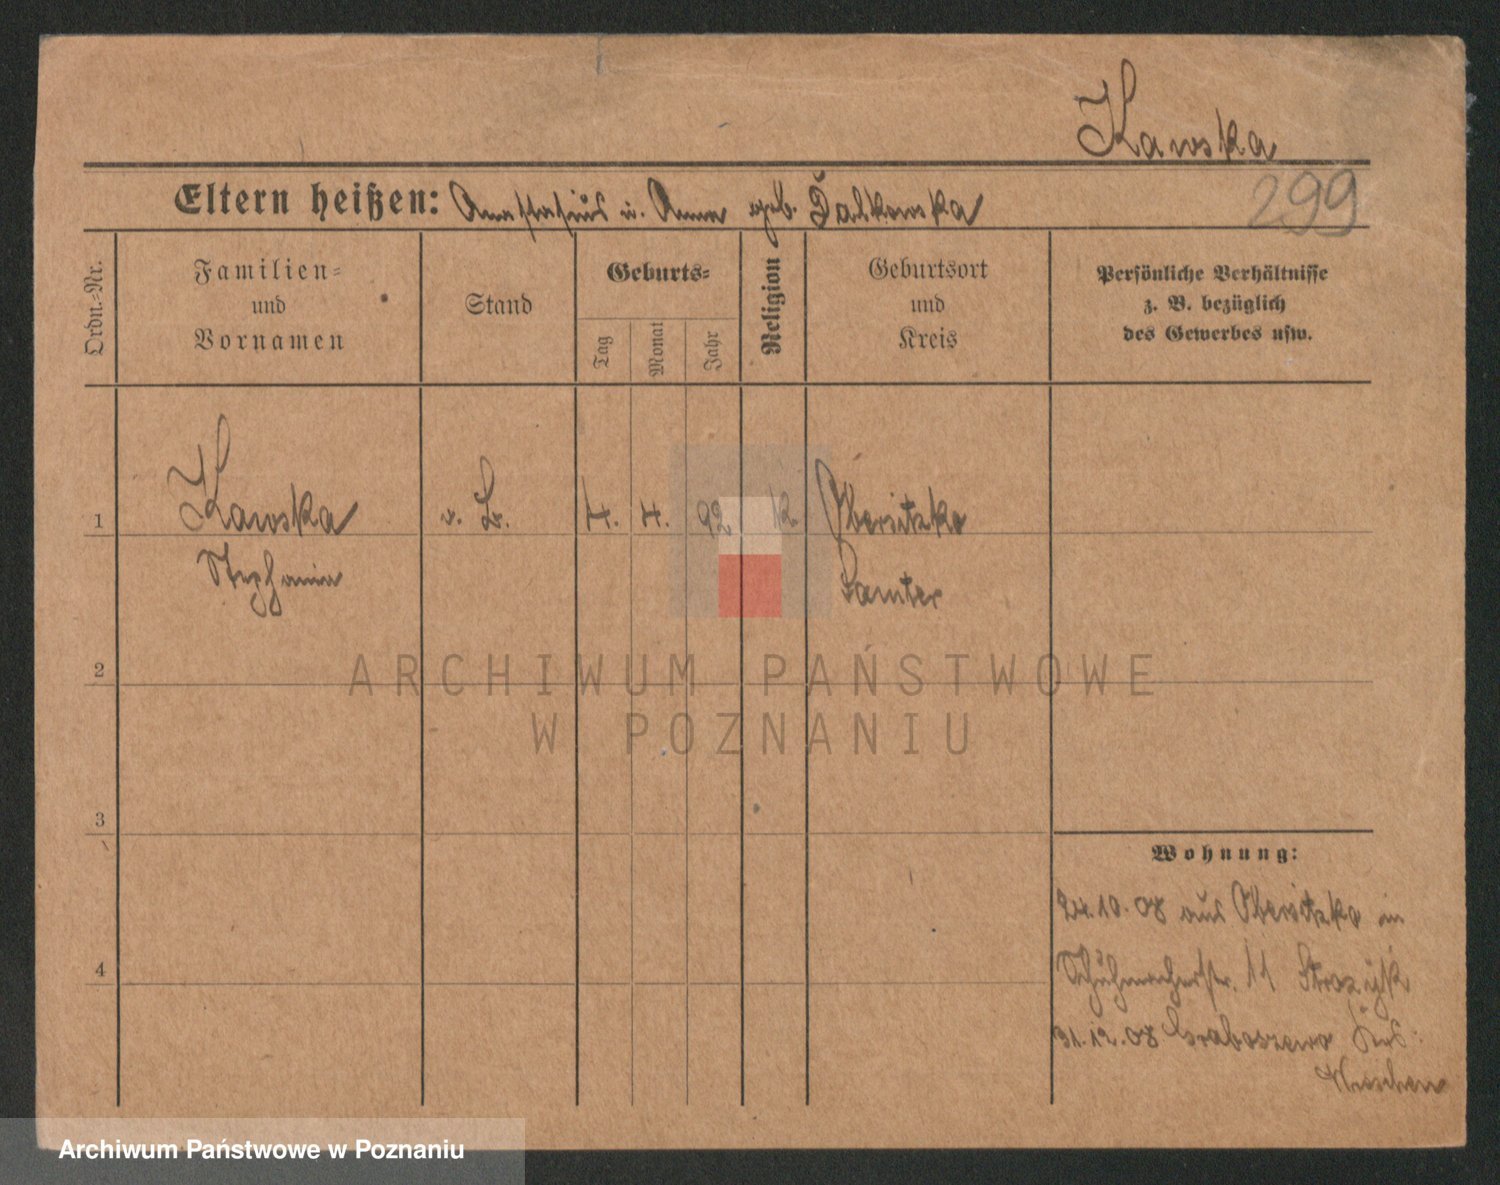 Kawska
Eltern heißen: Anasthasius u. Anna geb. Dalkowska
299
Ordn.=Nr.
Familien=
und
Vornamen
Stand
Geburts=
Tag
Monat
Jahr
Religion
Geburtsort
und
Kreis
Persönliche Verhältnisse
z. B. bezüglich
des Gewerbes usw.
1
Kawska
Stephania
o. B.
4.
4.
92
K.
Obersitzko
Samter
2
ARCHIWUM PAŃSTWOWE
W POZNANIU
3
Wohnung:
24.10.08 aus Obersitzko in
Schuhmacherstr. 11
4
31.12.08 Graboszewo Krs.
Wreschen
Archiwum Państwowe w Poznaniu